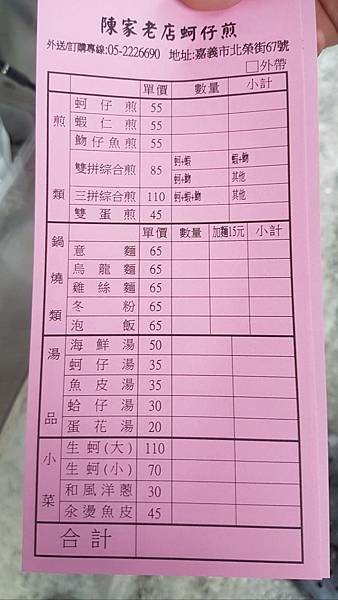 陳家老店蚵仔煎
外送/訂購專線:05-2226690 地址:嘉義市北榮街67號
□外帶
煎類 單價 數量 小計
蚵仔煎 55
蝦仁煎 55
魩仔魚煎 55
雙拼綜合煎 85 蚵+蝦 蝦+魩
蚵+魩 其他
三拼綜合煎 110 蚵+蝦+魩 其他
雙蛋煎 45
鍋燒類 單價 數量 加麵15元 小計
意麵 65
烏龍麵 65
雞絲麵 65
冬粉 65
泡飯 65
湯品
海鮮湯 50
蚵仔湯 35
魚皮湯 35
蛤仔湯 30
蛋花湯 20
小菜
生蚵(大) 110
生蚵(小) 70
和風洋蔥 30
汆燙魚皮 45
合計